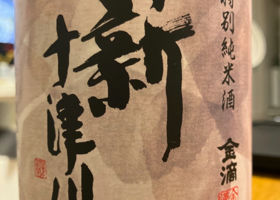 新十津川
特別純米酒
金滴